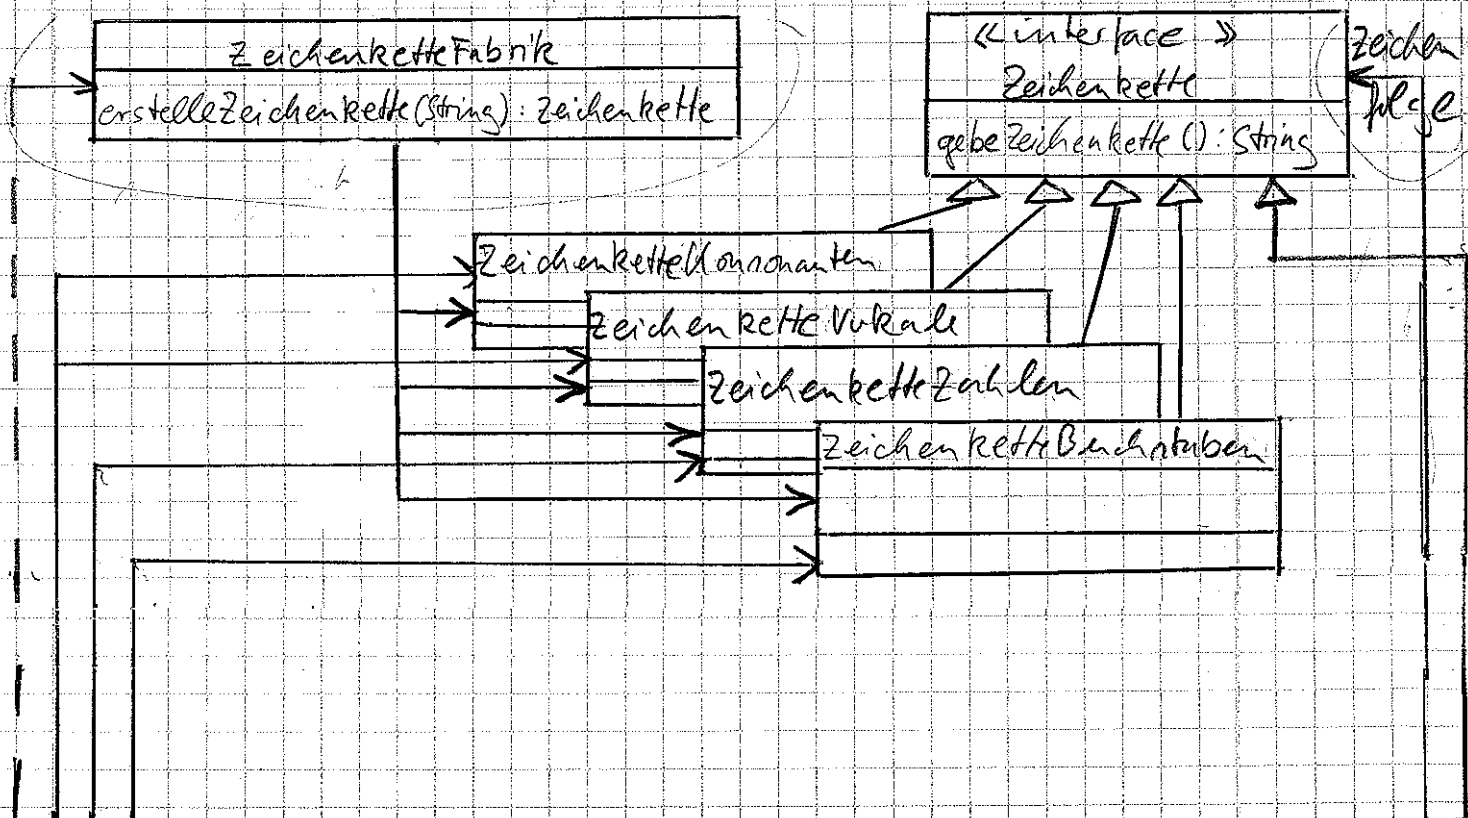 ZeichenketteFabrik
erstelleZeichenkette(String): Zeichenkette
«interface»
Zeichenkette
gebeZeichenkette(): String
Zeichen
folge
ZeichenketteKonsonanten
ZeichenketteVokale
ZeichenketteZahlen
ZeichenketteBuchstaben